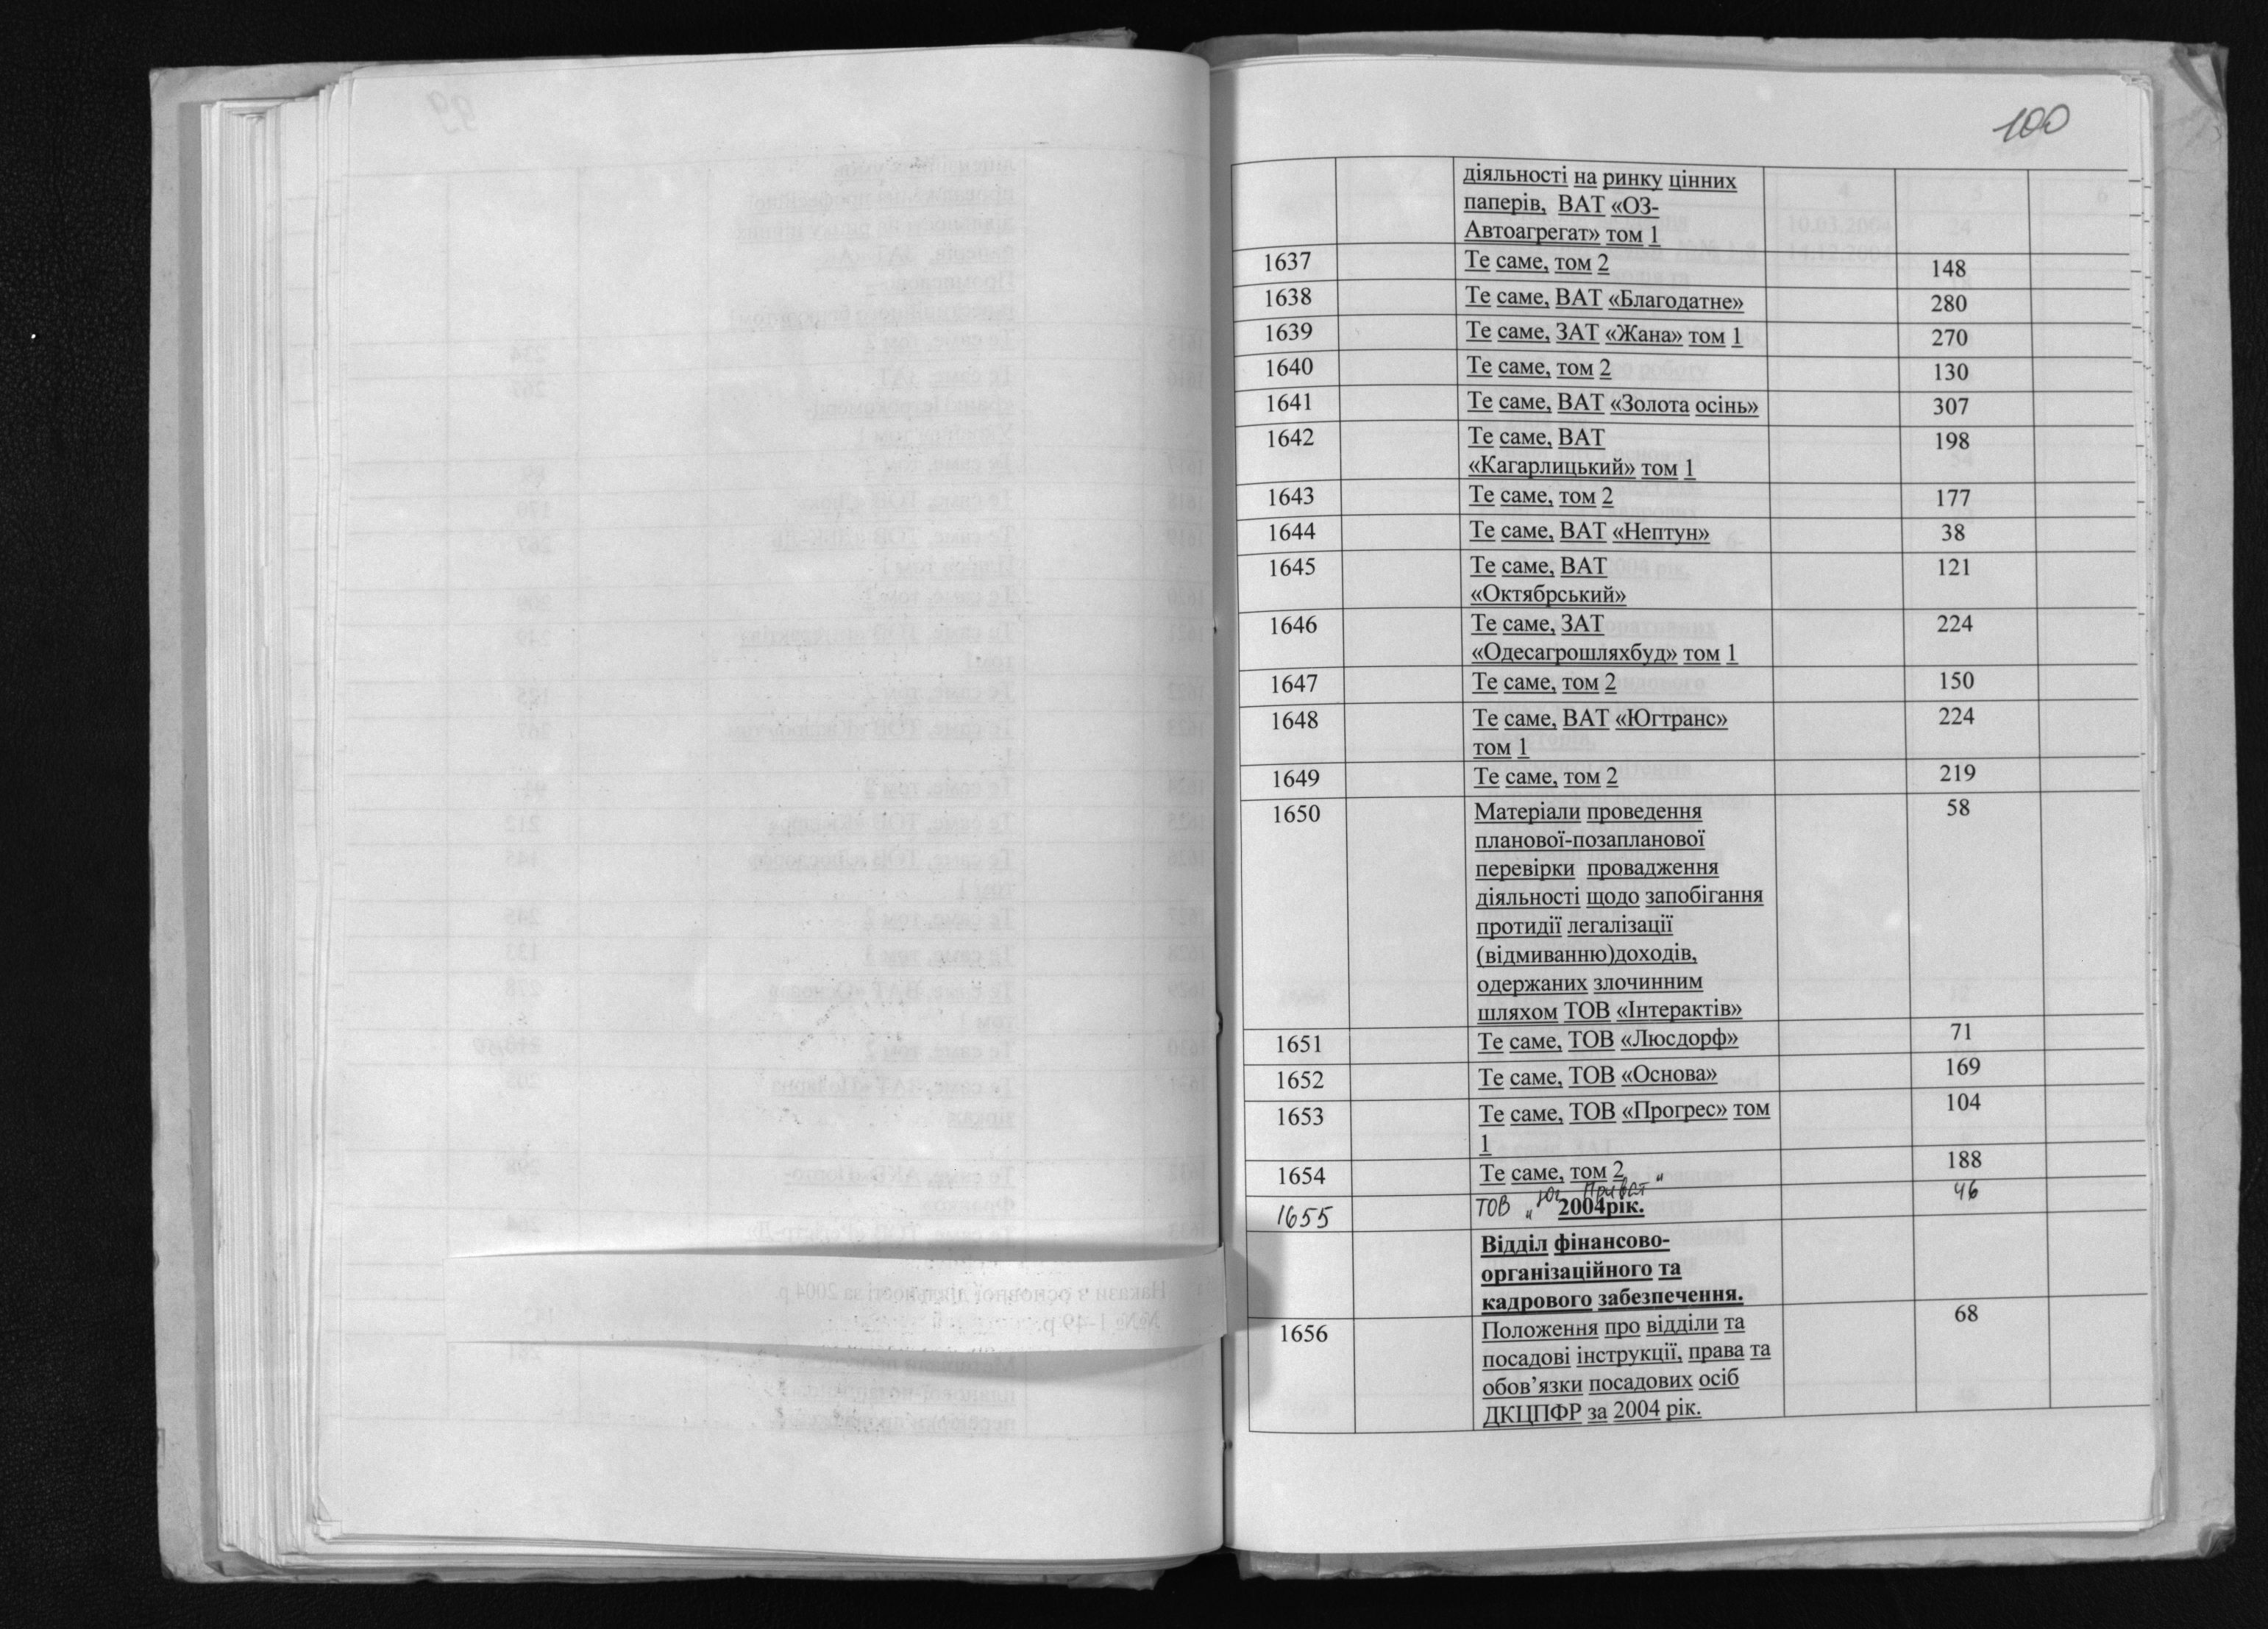 100
діяльності на ринку цінних
паперів, ВАТ «ОЗ-
Автоагрегат» том 1
1637 Те саме, том 2 148
1638 Те саме, ВАТ «Благодатне» 280
1639 Те саме, ЗАТ «Жана» том 1 270
1640 Те саме, том 2 130
1641 Те саме, ВАТ «Золота осінь» 307
1642 Те саме, ВАТ 198
«Кагарлицький» том 1
1643 Те саме, том 2 177
1644 Те саме, ВАТ «Нептун» 38
1645 Те саме, ВАТ 121
«Октябрський»
1646 Те саме, ЗАТ 224
«Одесагрошляхбуд» том 1
1647 Те саме, том 2 150
1648 Те саме, ВАТ «Югтранс» 224
том 1
1649 Те саме, том 2 219
1650 Матеріали проведення 58
планової-позапланової
перевірки провадження
діяльності щодо запобігання
протидії легалізації
(відмиванню)доходів,
одержаних злочинним
шляхом ТОВ «Інтерактів»
1651 Те саме, ТОВ «Люсдорф» 71
1652 Те саме, ТОВ «Основа» 169
1653 Те саме, ТОВ «Прогрес» том 104
1
1654 Те саме, том 2 188
1655 ТОВ „Юг Приват“ 46
2004рік.
Відділ фінансово-
організаційного та
кадрового забезпечення.
1656 Положення про відділи та 68
посадові інструкції, права та
обов’язки посадових осіб
ДКЦПФР за 2004 рік.